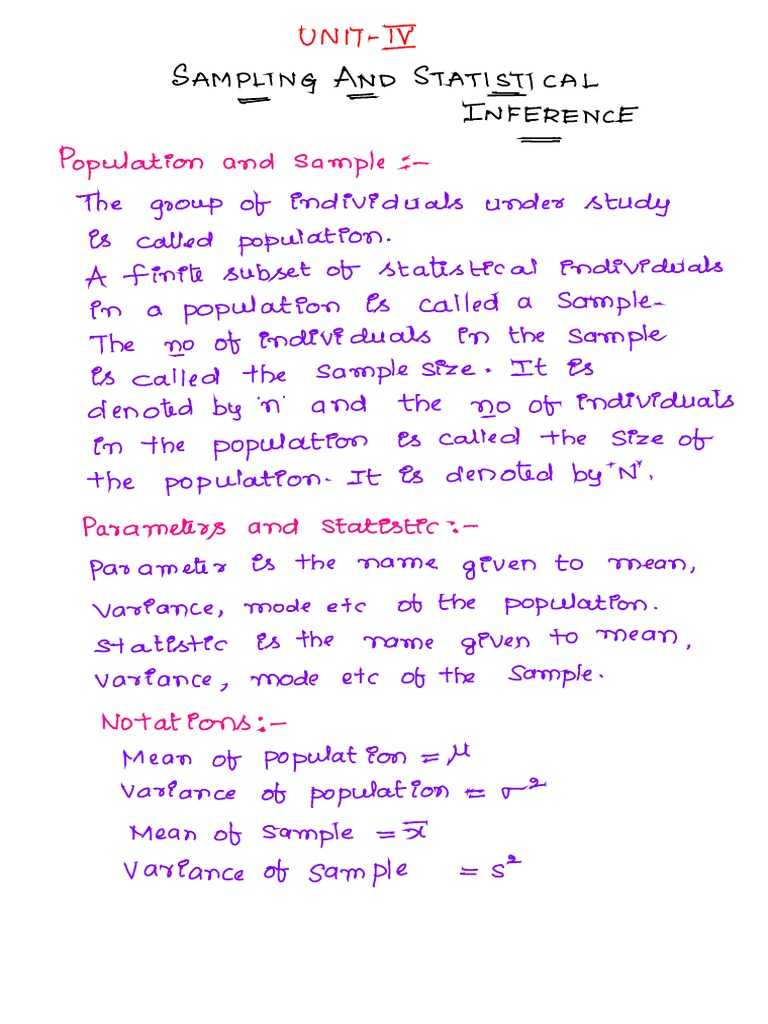 UNIT-IV
SAMPLING AND STATISTICAL
INFERENCE
Population and Sample :-
The group of individuals under study
is called population.
A finite subset of statistical individuals
in a population is called a Sample.
The no of individuals in the sample
is called the sample size. It is
denoted by 'n' and the no of individuals
in the population is called the size of
the population. It is denoted by 'N'.
Parameters and Statistic :-
Parameter is the name given to mean,
variance, mode etc of the population.
Statistic is the name given to mean,
variance, mode etc of the sample.
Notations :-
Mean of population = μ
Variance of population = σ²
Mean of sample = x̄
Variance of sample = s²